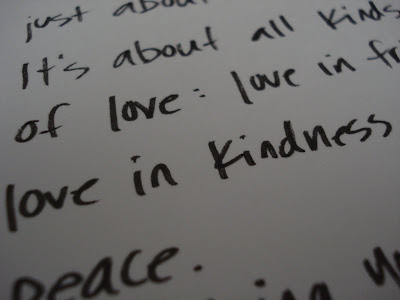 just about
It's about all kinds
of love: love in
love in kindness
peace.